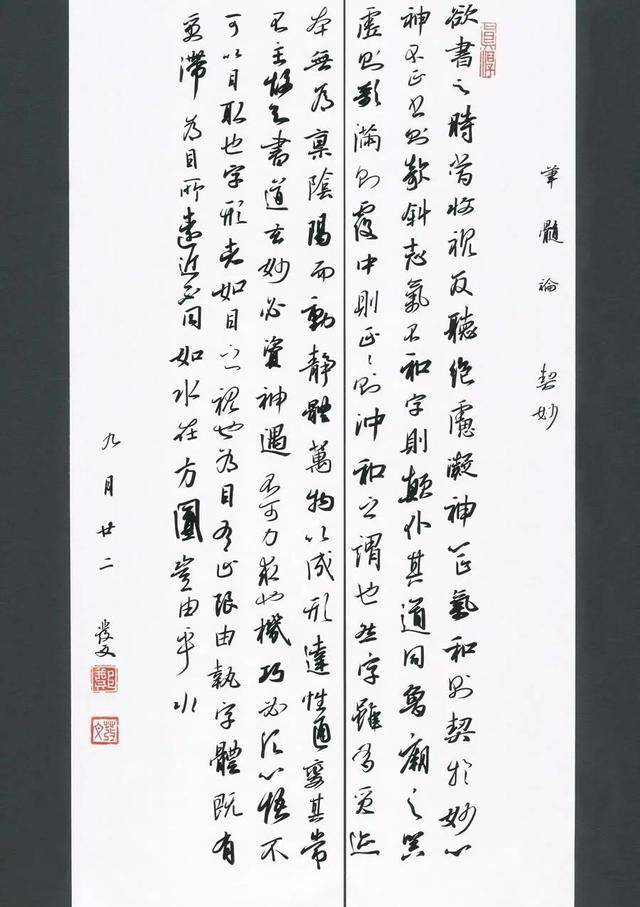 筆髓論 契妙
欲書之時當收視反聽絕慮凝神心正氣和則契於妙心
神不正書則欹斜志氣不和字則顛仆其道同魯廟之器
虛則欹滿則覆中則正正則沖和之謂也然字雖有質迹
本無為稟陰陽而動靜體萬物以成形達性通變其常
不主故知書道玄妙必資神遇不可力求也機巧必須心悟不
可以目取也字形者如目之視也為目有止限由執字體既有
質滯為目所遠近不同如水在方圓豈由乎水
九月廿二